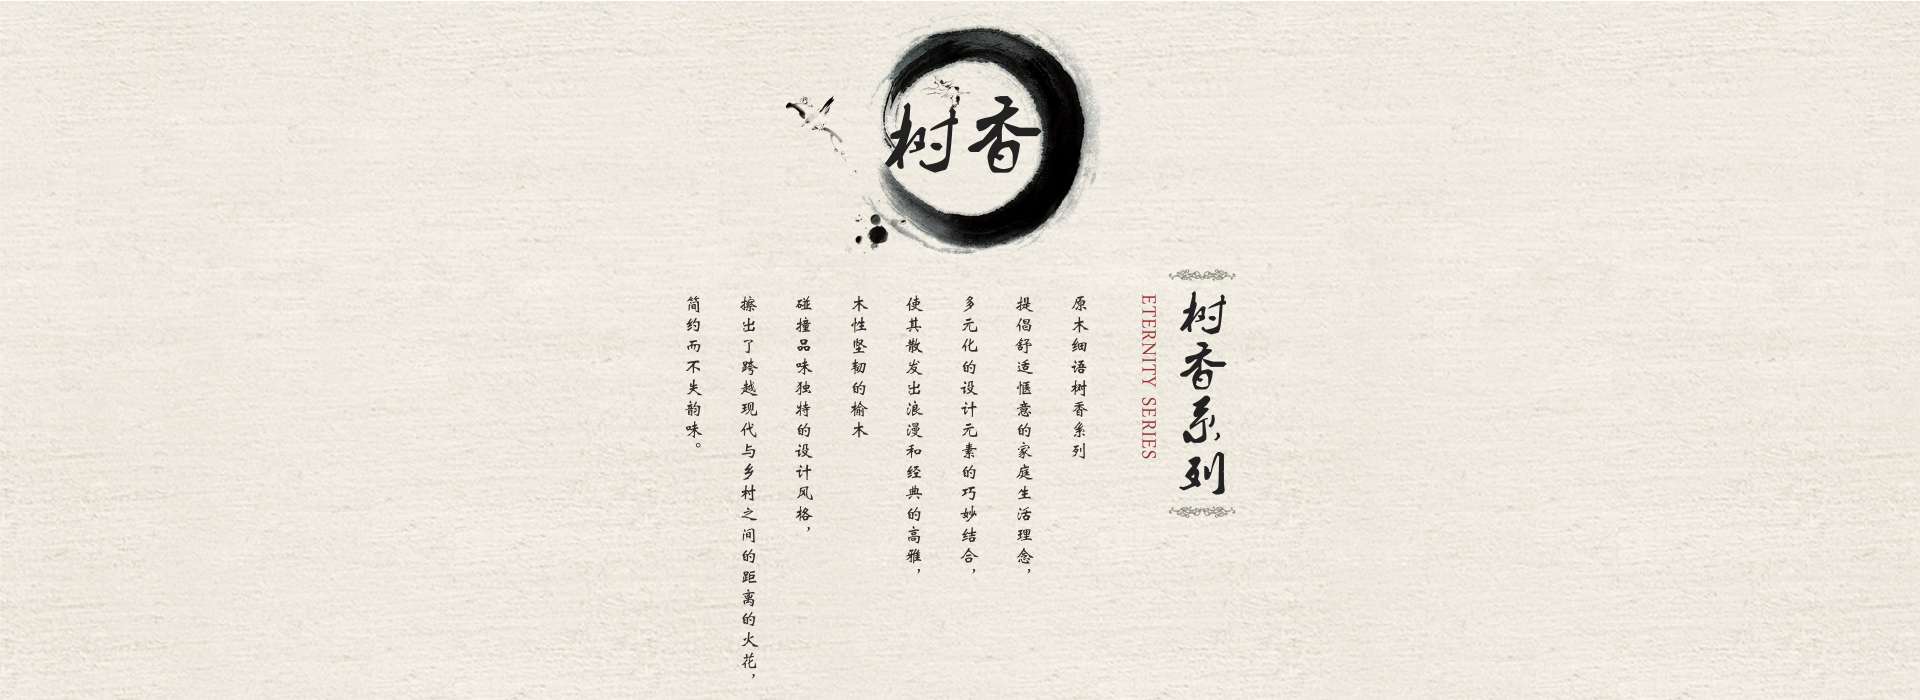 树香
树香系列
ETERNITY SERIES
原木细语树香系列
提倡舒适惬意的家庭生活理念，
多元化的设计元素的巧妙结合，
使其散发出浪漫和经典的高雅，
木性坚韧的榆木
碰撞品味独特的设计风格，
擦出了跨越现代与乡村之间的距离的火花，
简约而不失韵味。